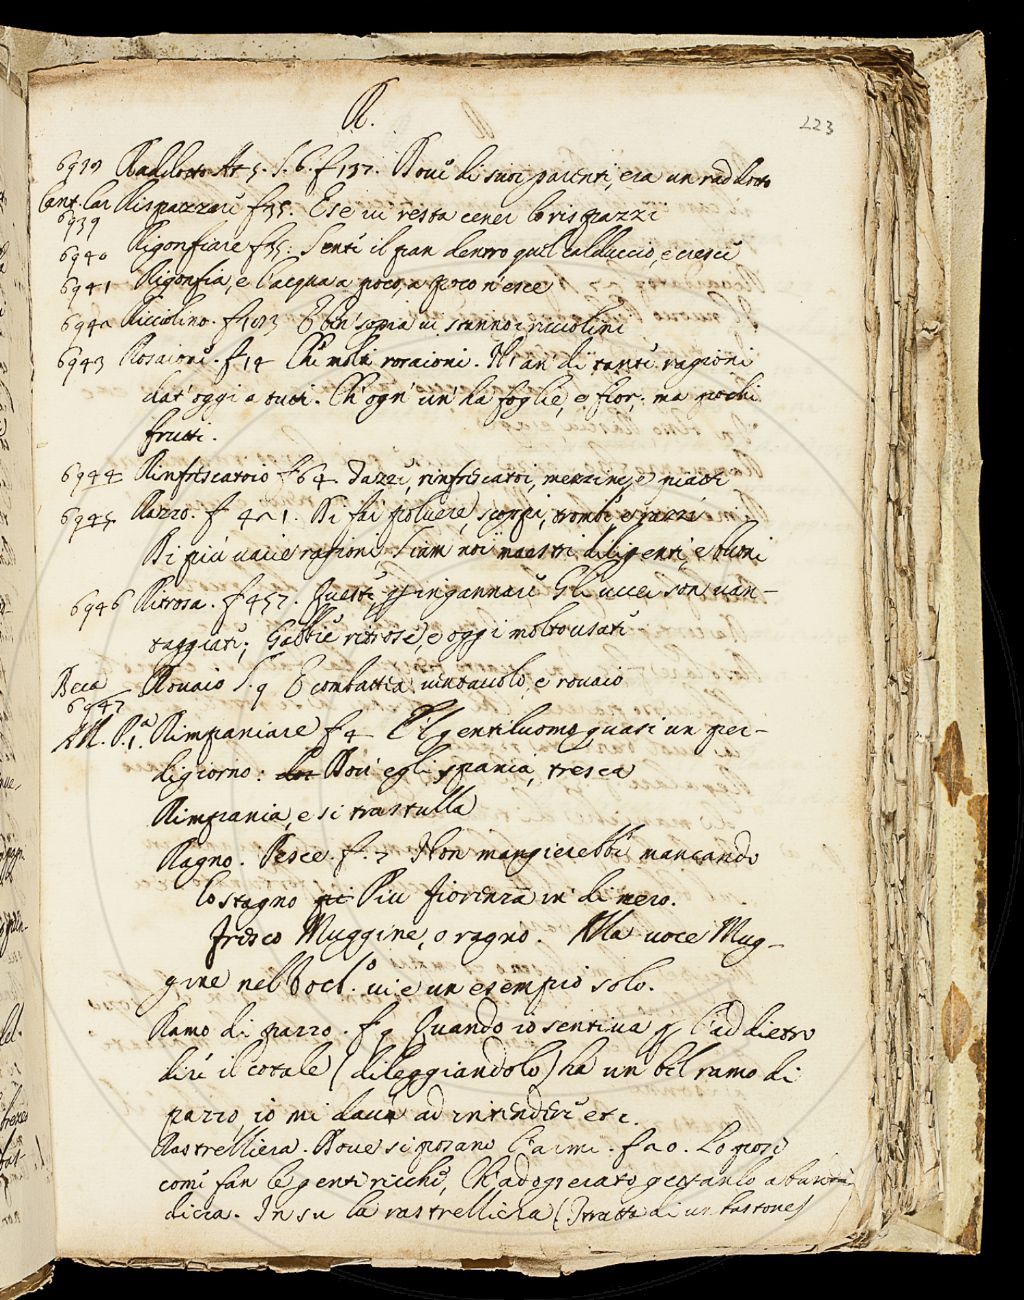 R.
223
6939 Raddotto At 5. S. 6. f 137. Dove di suoi parenti, era un raddotto
Cant. Car Rispazzare f 35. E se vi resta cener lo rispazzi
6939
6940 Rigonfiare f 35. Senti il pan dentro quel calduccio, e cresce
6941 Rigonfia, e l'acqua a poco, a poco n'esce
6942 Ricciolino. f 193 E ben sopra vi stanno i ricciolini
6943 Rosaioni. f 14 Che rosaioni. N'an' di tante ragioni
dat' oggi a tutti. Ch'ogn' un' ha foglie, e fior; ma pochi
frutti.
6944 Rinfrescatoio f. 64 Tazze, rinfrescatoi, mezzine, e piatti
6945 Razzo. f 421. Di fai polvere, scoppi, trombe e razzi
Di più varie ragioni, Siam noi maestri diligenti, e buoni
6946 Ritrosa. f 457. Queste, p ingannare Gli uccei son van-
taggiate; Gabbie ritrose, e oggi molto usate
Beca Rovaio S. 9 E combattea, ventavolo, e rovaio
6947
M. P. 1.ª Rimpaniare f 4 E'l gentiluomo quasi un per-
digiorno: Dov' egli spania, tresca
Rimpania, e si trastulla
Ragno. Pesce. f. 7 Non mangierebbe mancando
lo stagno Piu fiorenza in di nero.
fresco Muggine, o ragno. Alla voce Mug-
gine nel Voc.º vi è un esempio solo.
Ramo di pazzo. f 9 Quando io sentiva p l'addietro
dire il cotale (dileggiandolo) ha un bel ramo di
pazzo, io mi dava ad intendere etc.
Rastrelliera. Dove si posano l'armi. f 20. Lo posi
come fan le genti ricche, Ch'adoperato gettanlo a
dicca. In su la rastrelliera (Si tratta di un bastone)